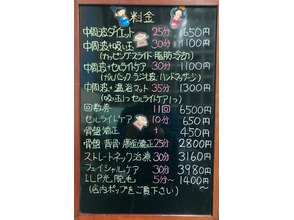 料金
中周波ダイエット 25分 1650円
中周波+吸い玉 30分 1100円
(カッピングスライド 脂肪冷却)
中周波+セルライトケア 30分 1100円
(ゲルパック ラジオ波 ハンドマッサージ)
中周波+温浴マット 35分 1300円
(吸い玉1つ セルライトケア1つ)
回数券 11回 6500円
セルライトケア 10分 650円
骨盤矯正 + 450円
骨盤・背骨・顔面矯正 25分 2800円
ストレートネック治療 30分 3160円
フェイシャルケア 30分 3980円
I.L.P光脱毛 5分〜 1400〜円
(店内ポップをご覧下さい)